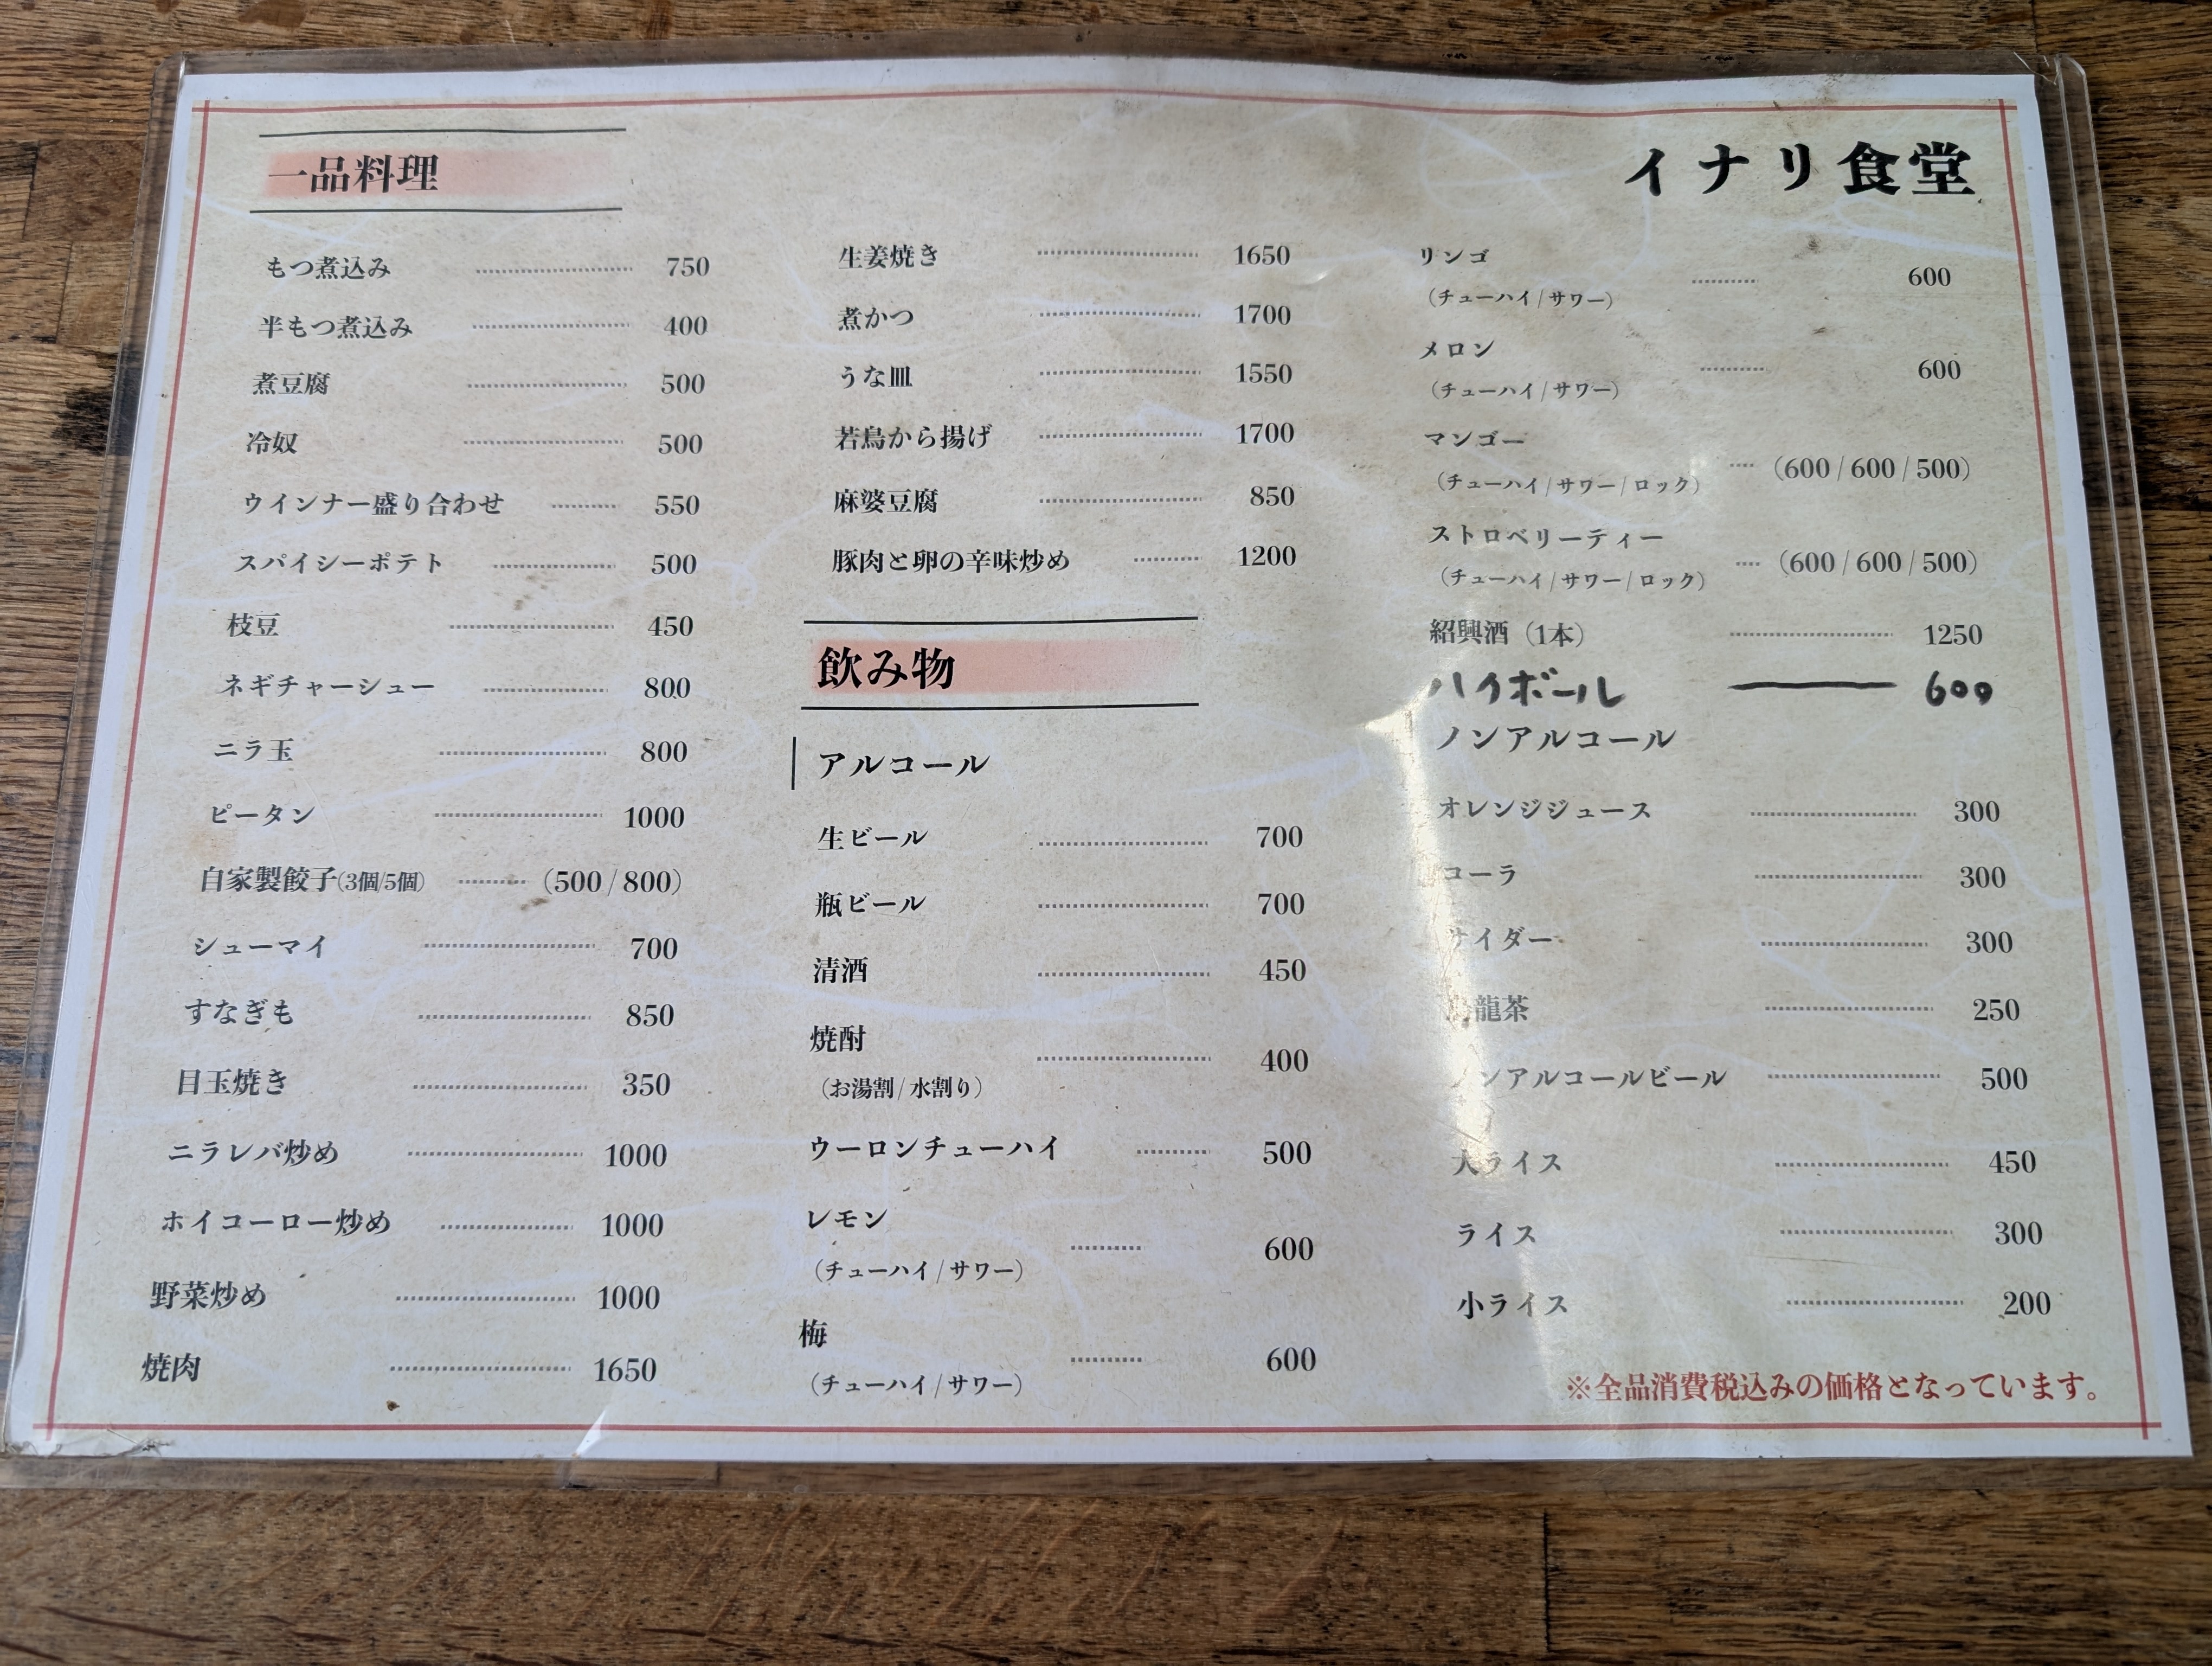 イナリ食堂
一品料理
もつ煮込み 750
半もつ煮込み 400
煮豆腐 500
冷奴 500
ウインナー盛り合わせ 550
スパイシーポテト 500
枝豆 450
ネギチャーシュー 800
ニラ玉 800
ピータン 1000
自家製餃子(3個/5個) (500/800)
シューマイ 700
すなぎも 850
目玉焼き 350
ニラレバ炒め 1000
ホイコーロー炒め 1000
野菜炒め 1000
焼肉 1650
生姜焼き 1650
煮かつ 1700
うな皿 1550
若鳥から揚げ 1700
麻婆豆腐 850
豚肉と卵の辛味炒め 1200
飲み物
アルコール
生ビール 700
瓶ビール 700
清酒 450
焼酎 400
(お湯割/水割り)
ウーロンチューハイ 500
レモン 600
(チューハイ/サワー)
梅 600
(チューハイ/サワー)
リンゴ 600
(チューハイ/サワー)
メロン 600
(チューハイ/サワー)
マンゴー (600/600/500)
(チューハイ/サワー/ロック)
ストロベリーティー (600/600/500)
(チューハイ/サワー/ロック)
紹興酒(1本) 1250
ハイボール 600
ノンアルコール
オレンジジュース 300
コーラ 300
サイダー 300
烏龍茶 250
ノンアルコールビール 500
大ライス 450
ライス 300
小ライス 200
※全品消費税込みの価格となっています。